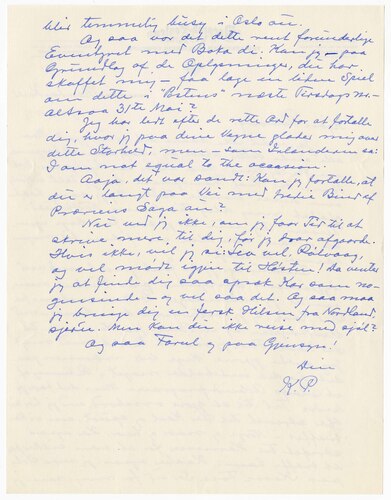 blir temmelig busy i Oslo än.
Og saa var det dette rent forunderlige
Eventyret med Boka di. Kan jeg – paa
Grundlag af de Oplysninger, du har
skaffet mig – faa lage en liten Spiel
om dette i "Posten" næste Tirsdags Nr.
altsaa 31te Mai?
Jeg har ledt efter de rette Ord for at fortælle
dig, hvor jeg paa dine Vegne glæder mig over
dette Storhed, men – som Irlænderen sa:
I am not equal to the occasion.
Aaja, det var sandt: Kan jeg fortælle, at
du er langt paa Vei med tredie Bind af
Præriens Saga än?
Nu ved jeg ikke, om jeg faar Tid til at
skrive mere til dig, før jeg snar afgaarde.
Hvis ikke, vil jeg si: Lev vel, Rølvaag,
og vel mødt igjen til Høsten! Da venter
jeg at finde dig saa spræk Kar som no-
gensinde – og vel saa det. Og saa maa
jeg bringe dig en fersk Hilsen fra Nordland,
sjerön. Men kan du ikke reise med sjøl?
Og saa Farvel og paa Gjensyn!
Din
K. P.